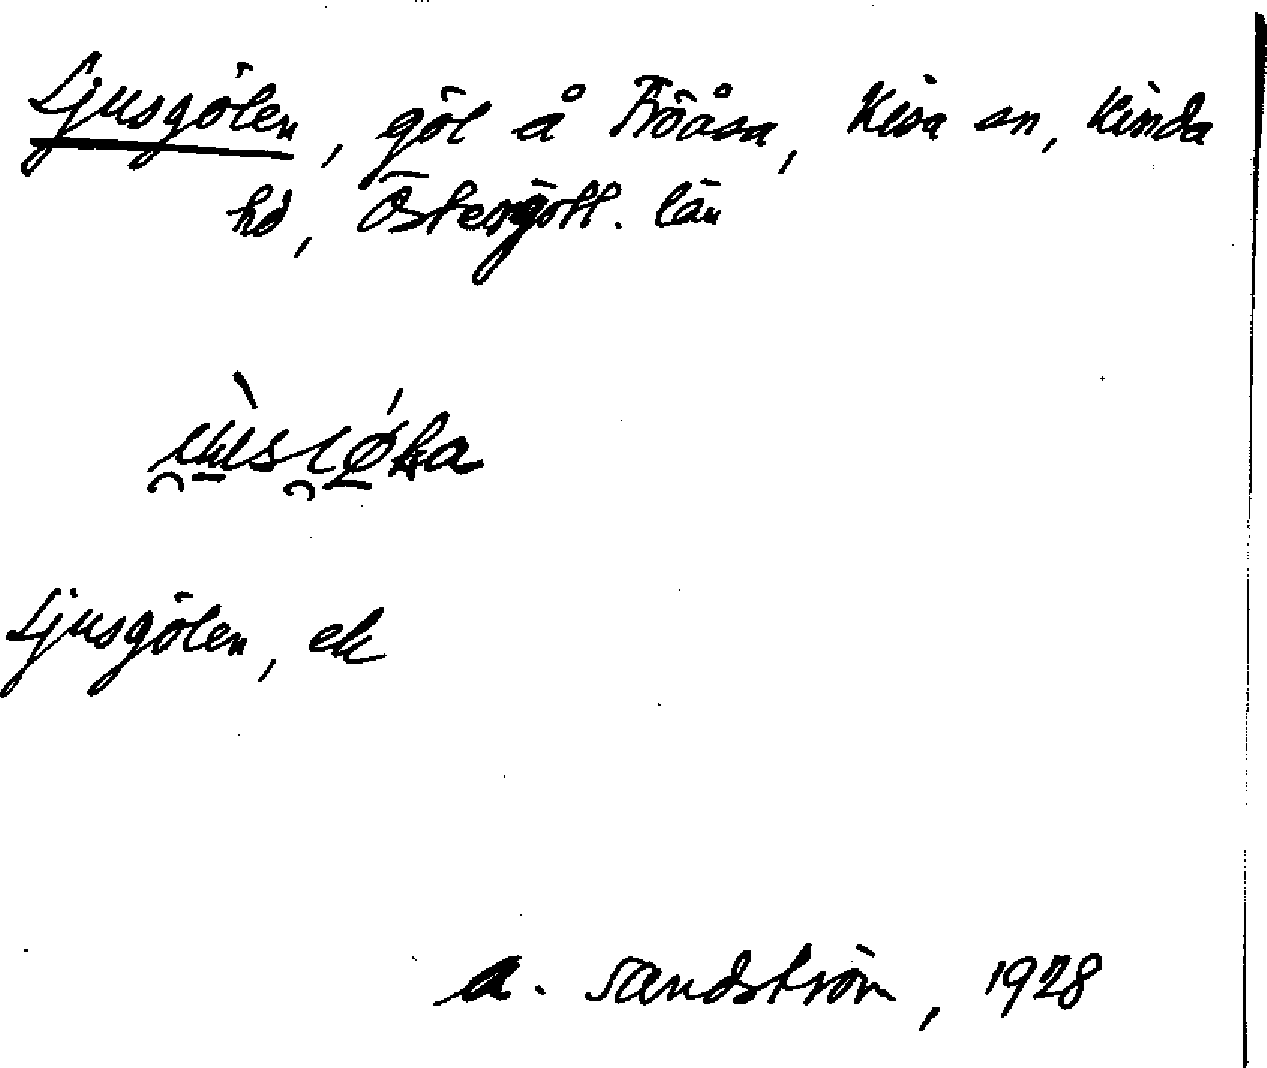 Ljusgölen, göl å Fröåsa, Kisa sn, Kinda
hd, Östergötl. län
Ljusgölen, ek
A. Sandström, 1928